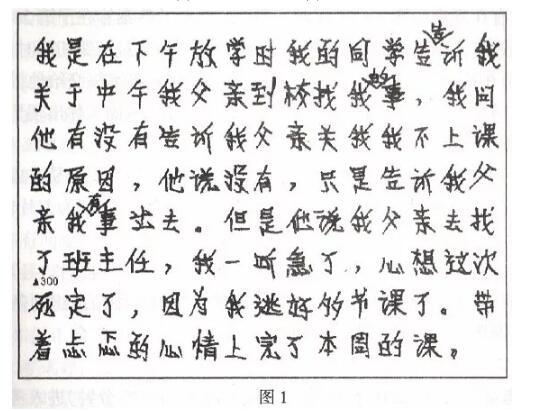 告
我是在下午放学时我的同学告诉我
关于中午我父亲到校找我的事，我问
他有没有告诉我父亲关我我不上课
的原因，他说没有，只是告诉我父
亲我有事出去。但是他说我父亲去找
了班主任，我一听急了，心想这次
▲300
死定了，因为我逃好多节课了。带
着忐忑的心情上完了本周的课。
图1